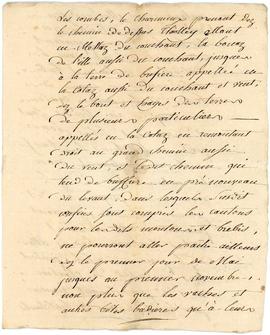 Les combes, le charmieux prenant dez
le chemin de dessus Tholloy étant
en Mottaz du couchant, la
de l'isle aussi du couchant, jusques
à la terre de buffiere appellée en
la Cotaz aussi du couchant et vent;
dez le bout et hayes des terres
de plusieurs particuliers
appellés en la Cotaz en remontant
droit au grand chemin aussi
du vent, et le chemin qui
tend de buffiere en pré nouveau
du levant, dans lesquels susdits
confins sont compris les cantons
pour les dits moutons et brebis,
ne pourront aller paitre ailleurs
dez le premier jour de Mai
jusques au premier novembre,
non plus que les vaches et
autres bêtes qu'à leur